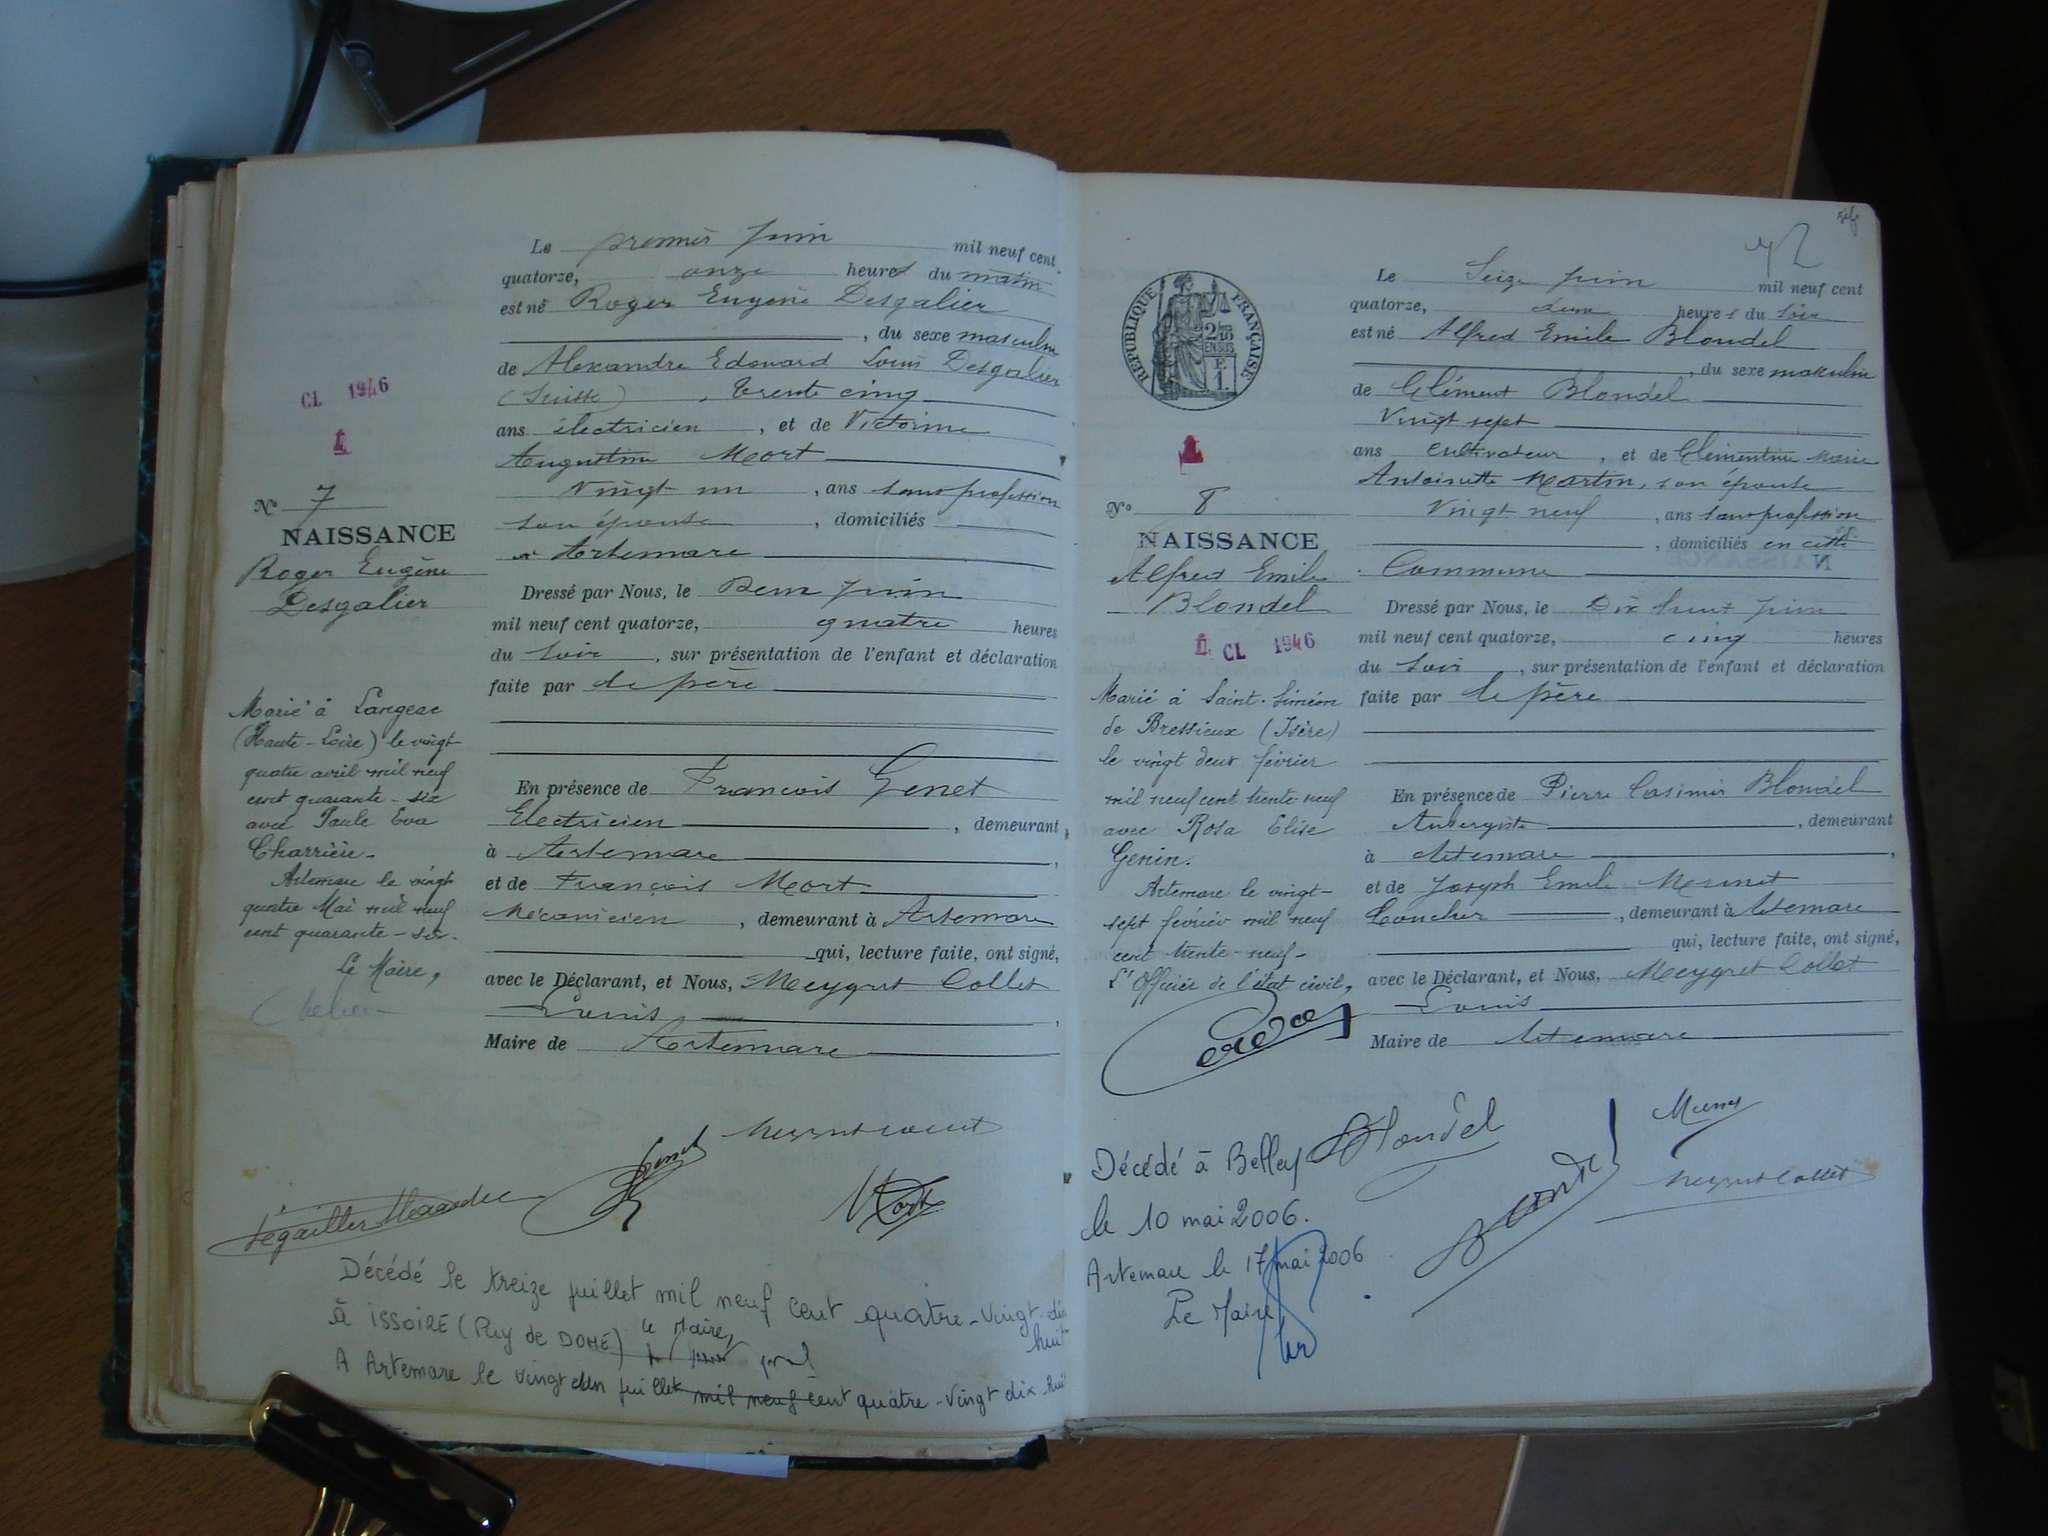 Le premier juin mil neuf cent
quatorze, onze heures du matin
est né Roger Eugène Desgalier
, du sexe masculin
de Alexandre Edouard Louis Desgalier
(Suisse) , trente cinq
ans électricien , et de Victorine
Augustine Mort
vingt un , ans sans profession
son épouse , domiciliés
à Artemare
Dressé par Nous, le Deux juin
mil neuf cent quatorze, quatre heures
du soir , sur présentation de l'enfant et déclaration
faite par le père
En présence de François Genet
Electricien , demeurant
à Artemare ,
et de François Mort
Mécanicien , demeurant à Artemare
qui, lecture faite, ont signé,
avec le Déclarant, et Nous, Meygret Collet
Louis ,
Maire de Artemare
CL 1946
N° 7
NAISSANCE
Roger Eugène
Desgalier
Marié à Langeac
(Haute-Loire) le vingt
quatre avril mil neuf
cent quarante-six
avec Paule Eva
Charrière.
Artemare le vingt
quatre Mai mil neuf
cent quarante-six.
Le Maire,
Genet
Mort
Décédé le treize juillet mil neuf cent quatre-vingt-dix
huit
à ISSOIRE (Puy de DOME) le Maire,
A Artemare le vingt deux juillet mil neuf cent quatre-vingt dix-huit
42
REPUBLIQUE FRANÇAISE
2/10
EN SUS
F.
1.
Le Seize juin mil neuf cent
quatorze, deux heures du soir
est né Alfred Emile Blondel
, du sexe masculin
de Clément Blondel
Vingt sept
ans cultivateur , et de Clémentine Marie
Antoinette Martin, son épouse
Vingt neuf , ans sans profession
, domiciliés en cette
Commune
Dressé par Nous, le Dix huit juin
mil neuf cent quatorze, cinq heures
du soir , sur présentation de l'enfant et déclaration
faite par le père
En présence de Pierre Casimir Blondel
Aubergiste , demeurant
à Artemare ,
et de Joseph Emile Monnet
, demeurant à Artemare
qui, lecture faite, ont signé,
avec le Déclarant, et Nous, Meygret Collet
Louis
Maire de Artemare
N° 8
NAISSANCE
Alfred Emile
Blondel
CL 1946
Marié à Saint-Siméon
de Bressieux (Isère)
le vingt deux février
mil neuf cent trente-neuf
avec Rosa Elise
Genin.
Artemare le vingt-
sept février mil neuf
cent trente-neuf-
L'Officier de l'état civil,
Blondel
Meygret Collet
Décédé à Belley
le 10 mai 2006.
Artemare le 17 mai 2006
Le Maire